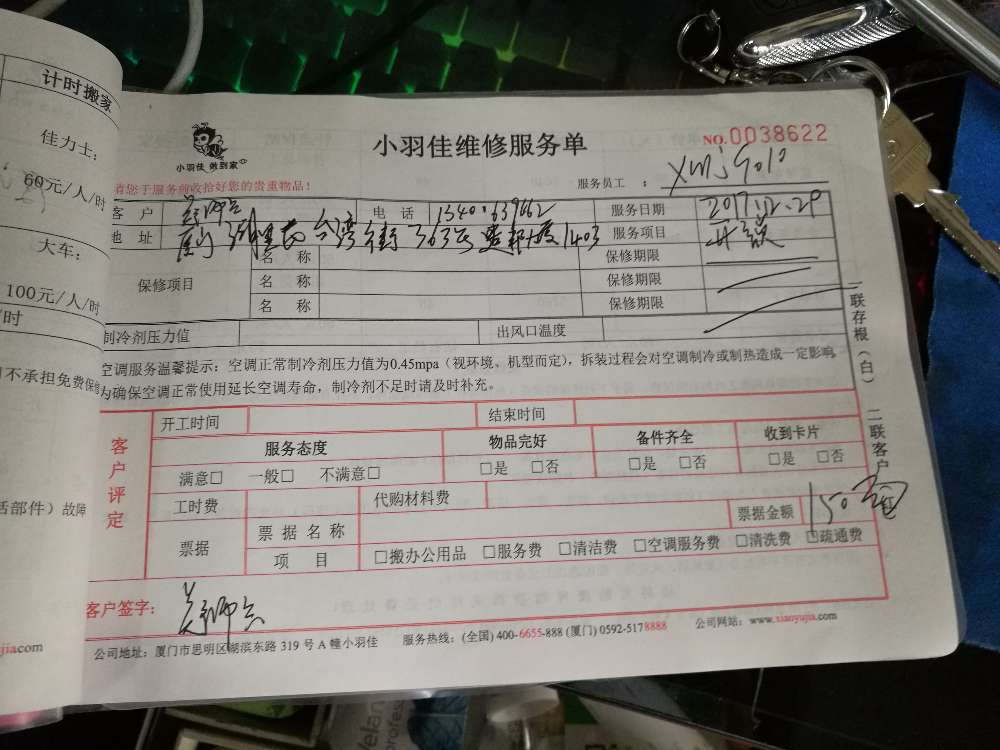 计时搬家
佳力士：
60元/人/时
大车：
100元/人/时
时
不承担免费保修
活部件）故障
jia.com
小羽佳 做到家
小羽佳维修服务单
NO.0038622
请您于服务前收拾好您的贵重物品！
服务员工 ： XMJ9010
客 户
电 话
服务日期 2017.12.29
地 址
台湾街363号
1403
服务项目
保修项目
名 称
保修期限
名 称
保修期限
名 称
保修期限
制冷剂压力值
出风口温度
空调服务温馨提示：空调正常制冷剂压力值为0.45mpa（视环境、机型而定），拆装过程会对空调制冷或制热造成一定影响，
为确保空调正常使用延长空调寿命，制冷剂不足时请及时补充。
一联存根（白） 二联客户
客户评定
开工时间
结束时间
服务态度
物品完好
备件齐全
收到卡片
满意□ 一般□ 不满意□
□是 □否
□是 □否
□是 □否
工时费
代购材料费
票据
票 据 名 称
票据金额
150
项 目
□搬办公用品 □服务费 □清洁费 □空调服务费 □清洗费 □疏通费
客户签字：
公司地址：厦门市思明区湖滨东路 319 号 A 幢小羽佳
服务热线：(全国) 400-6655-888 (厦门) 0592-5178888
公司网站：www.xiaoyujia.com